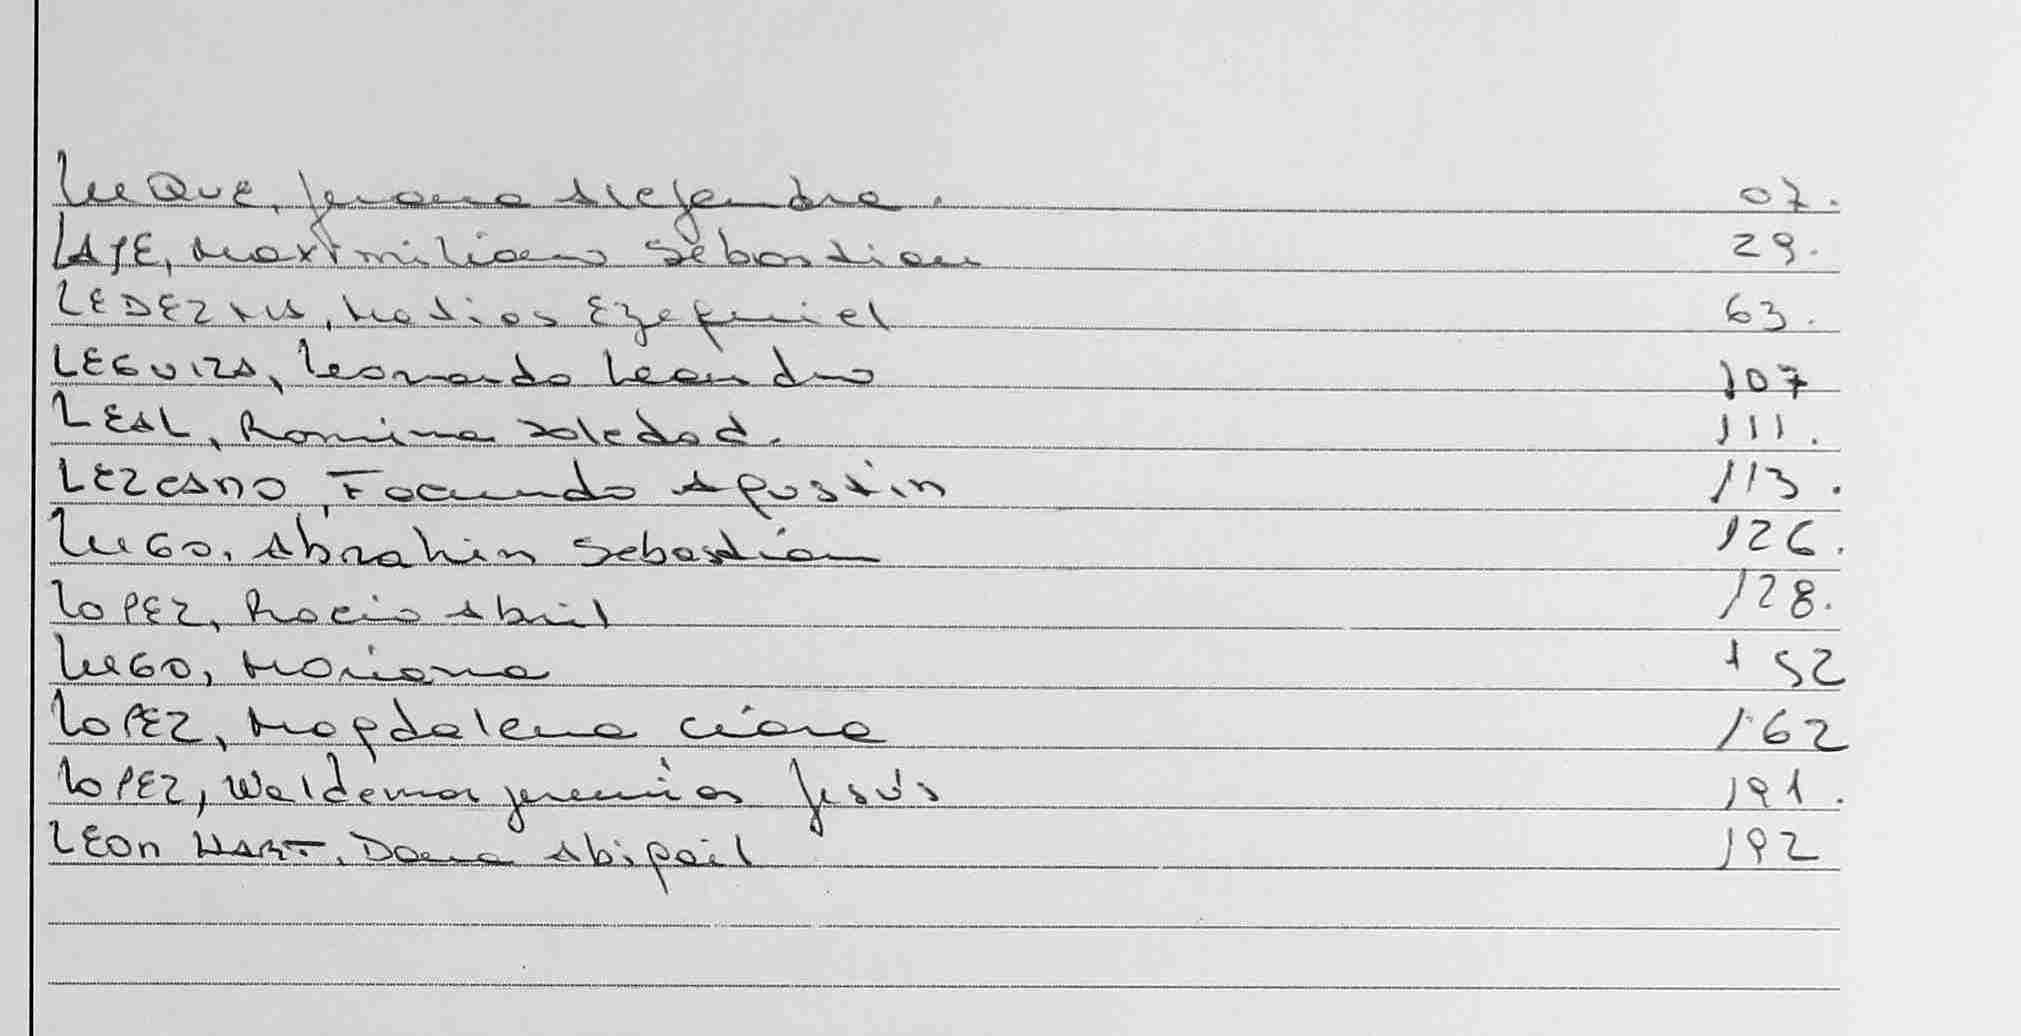 LuQUE, Jimena Alejandra. 07.
LAJE, Maximiliano Sebastian 29.
LEDEZMA, Matias Ezequiel 63.
LEGUIZA, Leonardo Leandro 107
LEAL, Romina Soledad. 111.
LEZCANO, Facundo Agustin 113.
LuGO, Abrahin Sebastián 126.
LOPEZ, Rocio Abril 128.
LuGO, Mariana 152
LOPEZ, Magdalena Ciara 162
LOPEZ, Waldemar Jeremías Jesús 191.
LEON HART, Dana Abigail 192